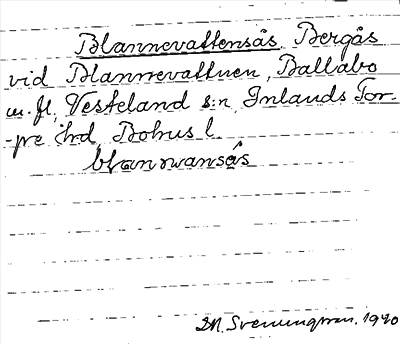 Blannevattensås, Bergås
vid Blannevattnen, Ballabo
m. fl, Vesteland s:n, Inlands Tor-
-pe hd, Bohus l.
blanwansås
M. Svenungsson. 1920